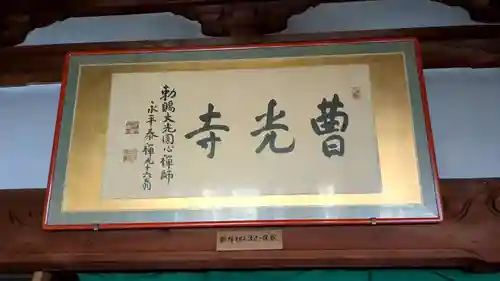 曹光寺
勅賜大光圓心禅師
永平泰禅九十六翁